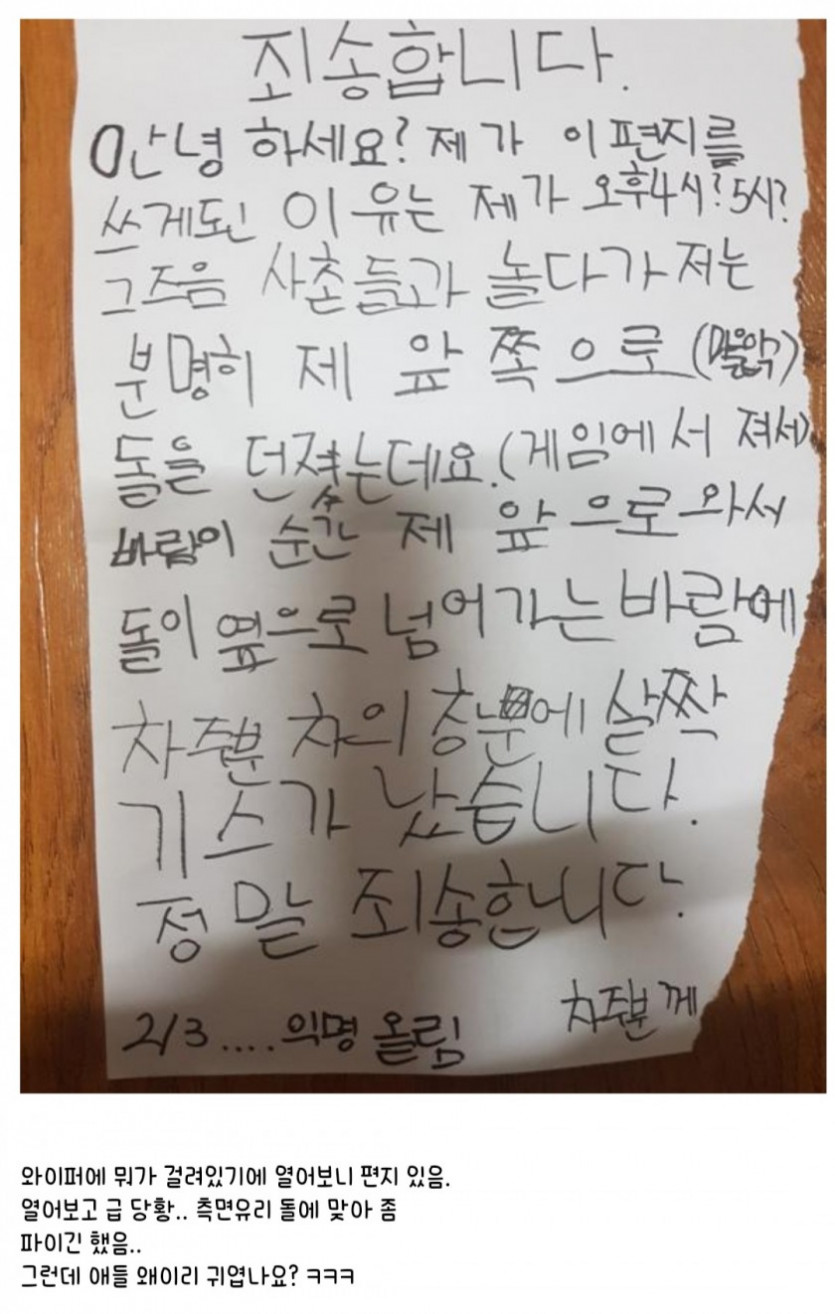 죄송합니다.
안녕 하세요? 제가 이 편지를
쓰게된 이유는 제가 오후4시? 5시?
그즈음 사촌들과 놀다가 저는
분명히 제 앞 쪽으로
돌을 던졌는데요.(게임에서 져서)
바람이 순간 제 앞으로와서
돌이 옆으로 넘어가는 바람에
차주분 차의 창문에 살짝
기스가 났습니다.
정말 죄송합니다.
차주분께
2/3 .... 익명 올림
와이퍼에 뭐가 걸려있기에 열어보니 편지 있음.
열어보고 급 당황.. 측면유리 돌에 맞아 좀
파이긴 했음..
그런데 애들 왜이리 귀엽나요? ㅋㅋㅋ